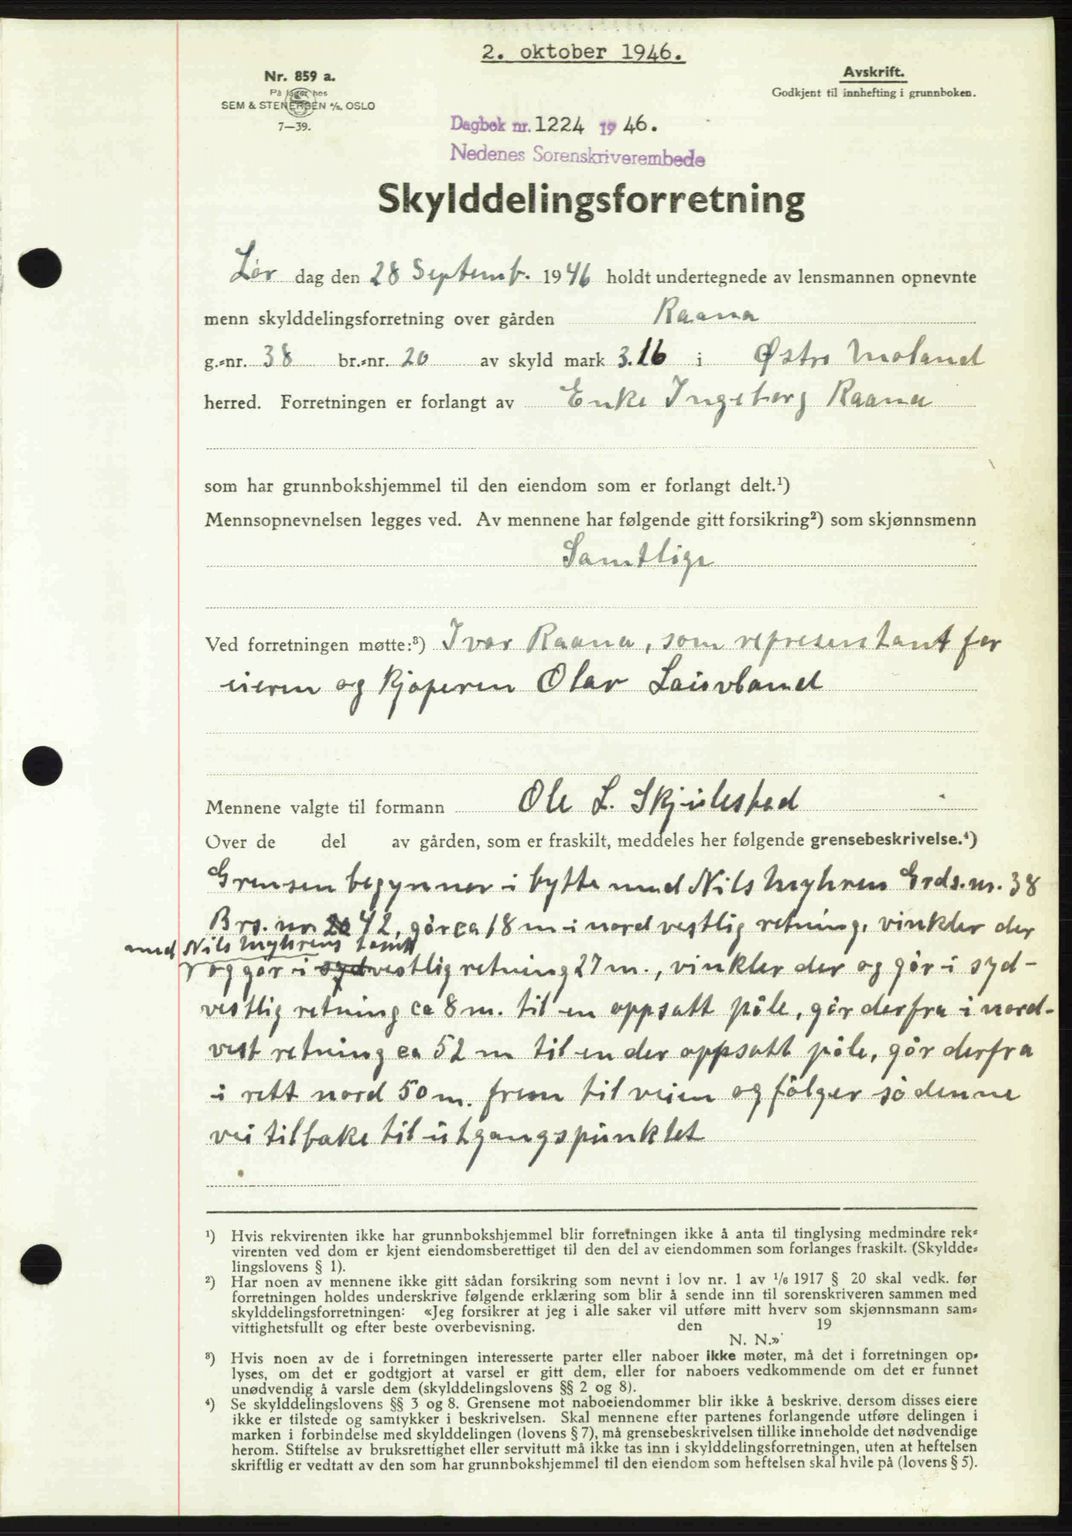 2. oktober 1946.
Nr. 859 a.
På lager hos
SEM & STENERSEN A/S. OSLO
7—39.
Avskrift.
Godkjent til innhefting i grunnboken.
Dagbok nr. 1224 19 46.
Nedenes Sorenskriverembede
Skylddelingsforretning
Lør dag den 28 Septemb. 1946 holdt undertegnede av lensmannen opnevnte
menn skylddelingsforretning over gården Raana
g.-nr. 38 br.-nr. 20 av skyld mark 3.16 i Østre Moland
herred. Forretningen er forlangt av Enke Ingeborg Raana
som har grunnbokshjemmel til den eiendom som er forlangt delt.¹)
Mennsopnevnelsen legges ved. Av mennene har følgende gitt forsikring²) som skjønnsmenn
Samtlige
Ved forretningen møtte:³) Ivar Raana, som representant for
eieren og kjøperen Olav
Mennene valgte til formann Ole L. Skjulestad
Over de del av gården, som er fraskilt, meddeles her følgende grensebeskrivelse.⁴)
Grensen begynner i bytte med Nils Myhren Grds. nr. 38
Brs. nr. 42, går ca 18 m i nord vestlig retning, vinkler der
med Nils Myhrens
og går i vestlig retning 27 m., vinkler der og går i syd-
vestlig retning ca 8 m. til en oppsatt påle, går derfra i nord-
vest retning ca 52 m til en der oppsatt påle, går derfra
i rett nord 50 m. frem til veien og følger så denne
vei tilbake til utgangspunktet
¹) Hvis rekvirenten ikke har grunnbokshjemmel blir forretningen ikke å anta til tinglysing medmindre rek-
virenten ved dom er kjent eiendomsberettiget til den del av eiendommen som forlanges fraskilt. (Skyldde-
lingslovens § 1).
²) Har noen av mennene ikke gitt sådan forsikring som nevnt i lov nr. 1 av 1/6 1917 § 20 skal vedk. før
forretningen holdes underskrive følgende erklæring som blir å sende inn til sorenskriveren sammen med
skylddelingsforretningen: «Jeg forsikrer at jeg i alle saker vil utføre mitt hverv som skjønnsmann sam-
vittighetsfullt og efter beste overbevisning. den 19
N. N.»
³) Hvis noen av de i forretningen interesserte parter eller naboer ikke møter, må det i forretningen op-
lyses, om det er godtgjort at varsel er gitt dem, eller for naboers vedkommende om det er funnet
unødvendig å varsle dem (skylddelingslovens §§ 2 og 8).
⁴) Se skylddelingslovens §§ 3 og 8. Grensene mot naboeiendommer blir ikke å beskrive, dersom disses eiere
ikke er tilstede og samtykker i beskrivelsen. Skal mennene efter partenes forlangende utføre delingen i
marken i forbindelse med skylddelingen (lovens § 7), må grensebeskrivelsen tillike inneholde det nødvendige
herom. Stiftelse av bruksrettighet eller servitutt må ikke tas inn i skylddelingsforretningen, uten at heftelsen
skriftlig er vedtatt av den som har grunnbokshjemmel til den eiendom som heftelsen skal hvile på (lovens § 5).